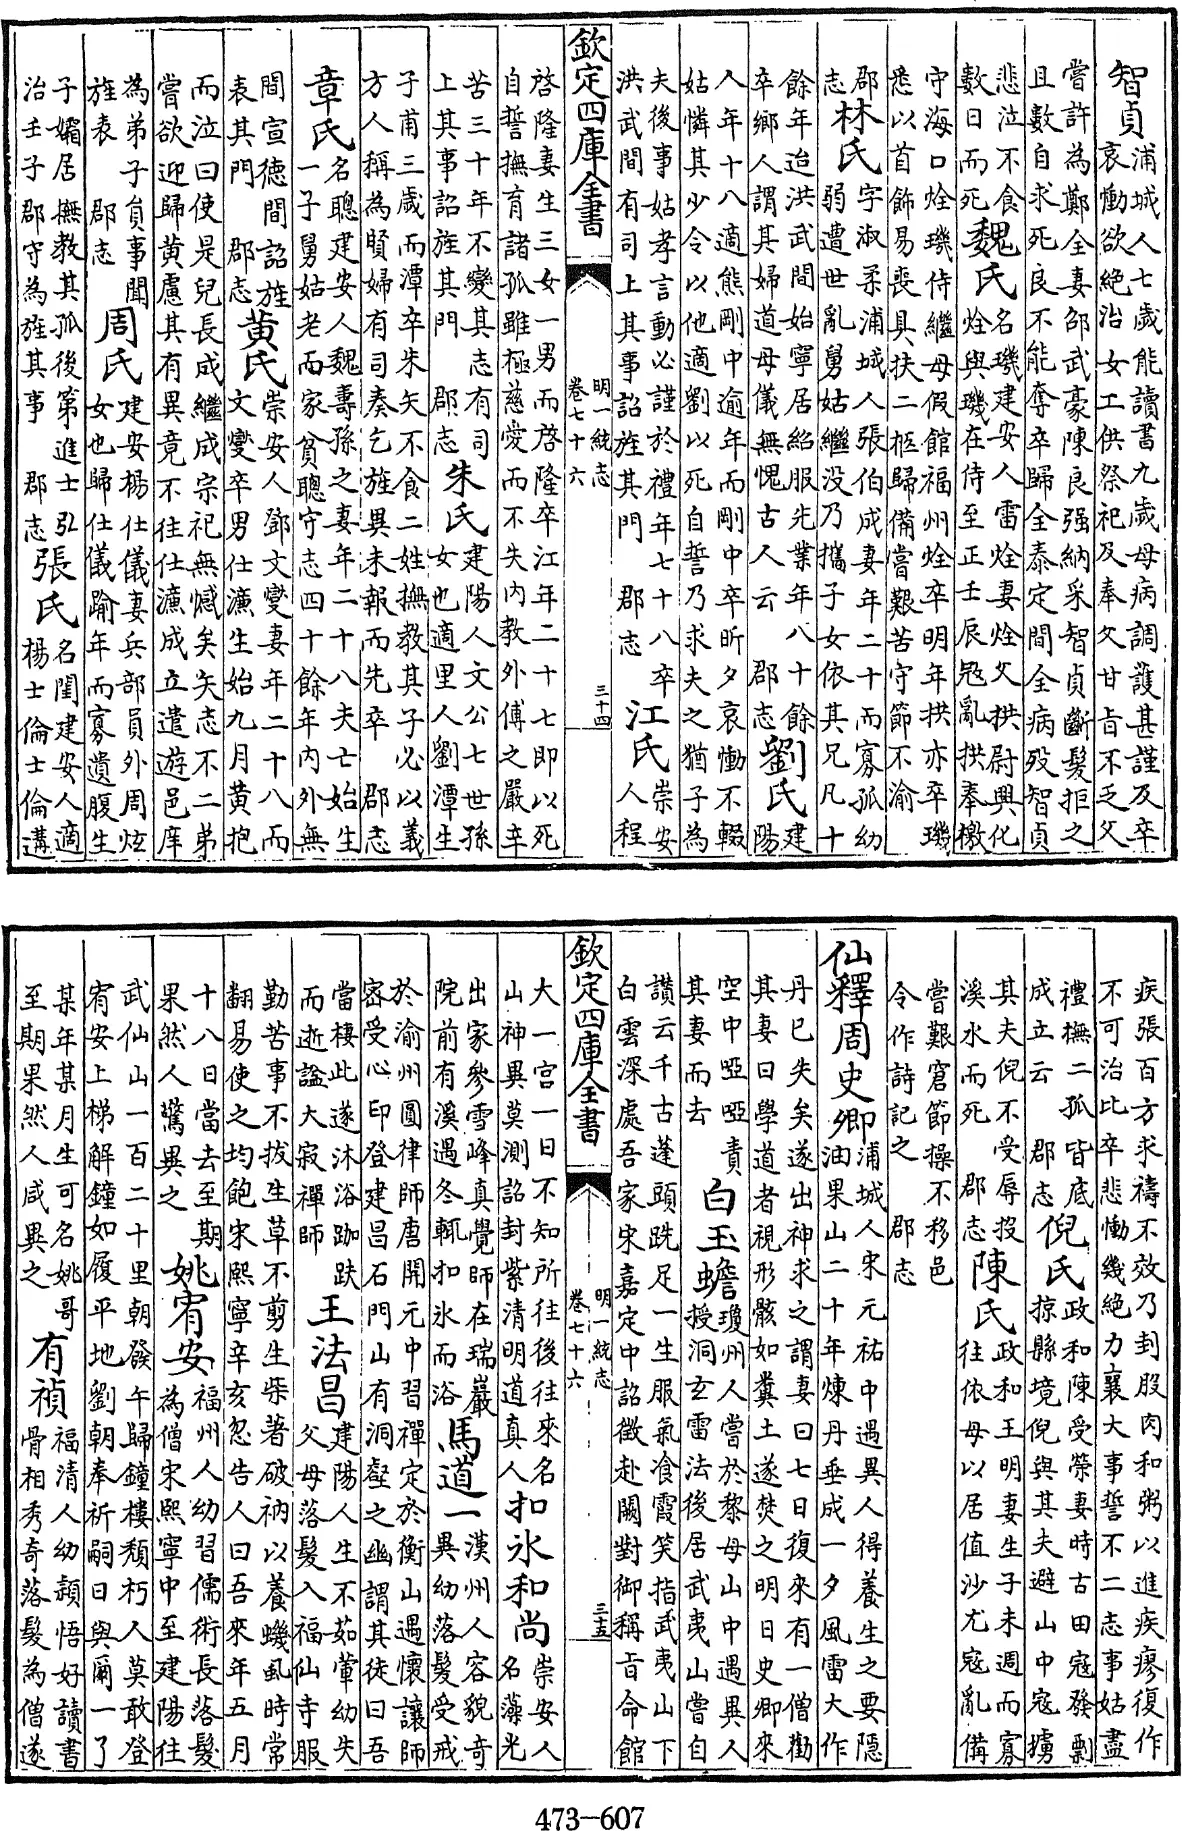 智貞
浦城人七歲能讀書九歲母病調護甚謹及卒
哀慟欲絕治女工供祭祀及奉父甘旨不乏父
嘗許為鄭全妻邵武豪陳良强納采智貞斷髮拒之
且數自求死良不能奪卒歸全泰定間全病歿智貞
悲泣不食
數日而死
魏氏
名璣建安人雷烇妻烇父拱尉興化
烇與璣在侍至正壬辰冦亂拱奉檄
守海口烇璣侍繼母假館福州烇卒明年拱亦卒璣
悉以首飾易喪具扶二柩歸備嘗艱苦守節不渝
郡志
林氏
字淑柔浦城人張伯成妻年二十而寡孤幼
弱遭世亂舅姑繼没乃攜子女依其兄凡十
餘年迨洪武間始寧居紹服先業年八十餘
卒鄉人謂其婦道母儀無愧古人云 郡志
劉氏
建
陽
人年十八適熊剛中逾年而剛中卒昕夕哀慟不輟
姑憐其少令以他適劉以死自誓乃求夫之猶子為
夫後事姑孝言動必謹於禮年七十八卒
洪武間有司上其事詔旌其門 郡志
江氏
崇安
人程
欽定四庫全書
明一統志
卷七十六
三十四
啓隆妻生三女一男而啓隆卒江年二十七即以死
自誓撫育諸孤雖極慈愛而不失内教外傅之嚴辛
苦三十年不變其志有司
上其事詔旌其門 郡志
朱氏
建陽人文公七世孫
女也適里人劉潭生
子甫三歲而潭卒朱矢不食二姓撫教其子必以義
方人稱為賢婦有司奏乞旌異未報而先卒 郡志
章氏
名聰建安人魏壽孫之妻年二十八夫亡始生
一子舅姑老而家貧聰守志四十餘年内外無
間宣德間詔旌
表其門 郡志
黄氏
崇安人鄧文變妻年二十八而
文變卒男仕濂生始九月黄抱
而泣曰使是兒長成繼成宗祀無憾矣矢志不二弟
嘗欲迎歸黄慮其有異竟不往仕濂成立遣遊邑庠
為弟子員事聞
旌表 郡志
周氏
建安楊仕儀妻兵部員外周炫
女也歸仕儀踰年而寡遺腹生
子孀居撫教其孤後第進士弘
治壬子郡守為旌其事 郡志
張氏
名閨建安人適
楊士倫士倫遘
疾張百方求禱不效乃封股肉和粥以進疾瘳復作
不可治比卒悲慟幾絕力襄大事誓不二志事姑盡
禮撫二孤皆底
成立云 郡志
倪氏
政和陳受榮妻時古田寇發剽
掠縣境倪與其夫避山中寇擄
其夫倪不受辱投
溪水而死 郡志
陳氏
政和王明妻生子未週而寡
往依母以居值沙尤寇亂備
嘗艱窘節操不移邑
令作詩記之 郡志
仙釋
周史卿
浦城人宋元祐中遇異人得養生之要隱
油果山二十年煉丹垂成一夕風雷大作
丹已失矣遂出神求之謂妻曰七日復來有一僧勸
其妻曰學道者視形骸如糞土遂焚之明日史卿來
空中啞啞責
其妻而去
白玉蟾
瓊州人嘗於黎母山中遇異人
授洞玄雷法後居武夷山嘗自
讃云千古蓬頭跣足一生服氣飡霞笑指武夷山下
白雲深處吾家宋嘉定中詔徵赴闕對御稱旨命館
欽定四庫全書
明一統志
卷七十六
三五
大一宫一日不知所往後往來名
山神異莫測詔封紫清明道真人
扣冰和尚
崇安人
名藻光
出家參雪峰真覺師在瑞巖
院前有溪遇冬輒扣氷而浴
馬道一
漢州人容貌奇
異幼落髮受戒
於渝州圓律師唐開元中習禪定於衡山遇懷讓師
密受心印登建昌石門山有洞壑之幽謂其徒曰吾
當棲此遂沐浴跏趺
而逝諡大寂禪師
王法昌
建陽人生不茹葷幼失
父母落髮入福仙寺服
勤苦事不拔生草不剪生柴著破衲以養蟣虱時常
翻易使之均飽宋熙寧辛亥忽告人曰吾來年五月
十八日當去至期
果然人驚異之
姚宥安
福州人幼習儒術長落髮
為僧宋熙寧中至建陽往
武仙山一百二十里朝發午歸鐘樓頹朽人莫敢登
宥安上梯解鐘如履平地劉朝奉祈嗣曰與爾一了
某年某月生可名姚哥
至期果然人咸異之
有禎
福清人幼頴悟好讀書
骨相秀奇落髮為僧遂
473-607